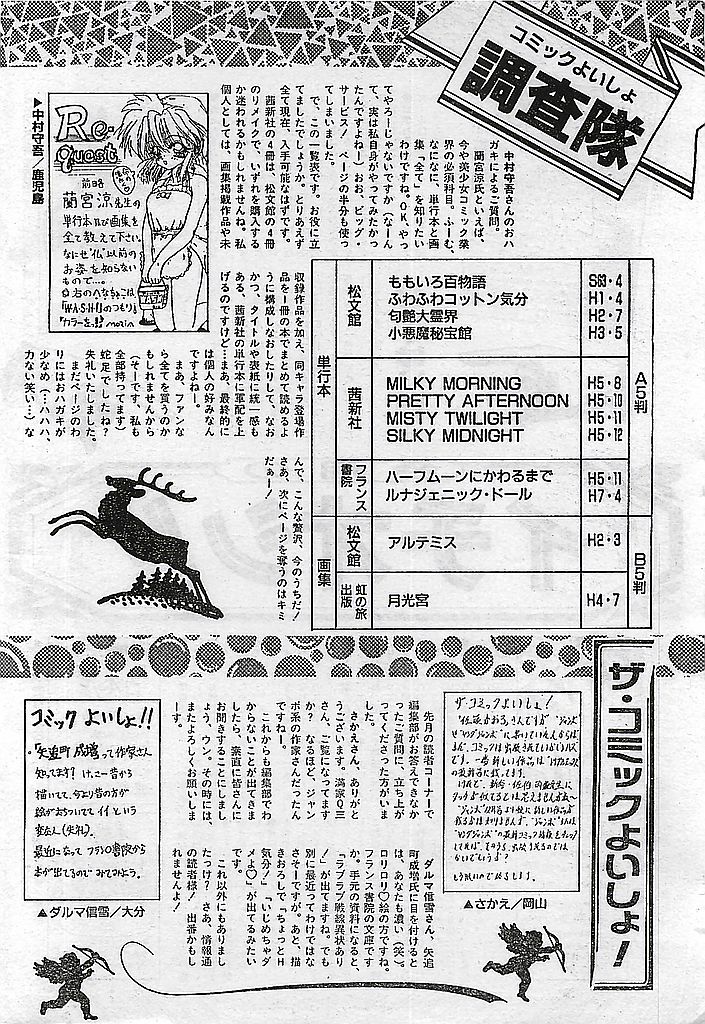 コミックよいしょ
調査隊
中村守吾さんのおハ
ガキによるご質問。
蘭宮涼氏といえば、
今や美少女コミック業
界の必須科目。ふーむ、
なになに、単行本と画
集「全て」を知りたい
わけですね。OK、やっ
てやろーじゃないですか（なーん
て、実は私自身がやってみたかっ
たんですよねー）おお、ビッグ・
サービス！ページの半分も使っ
てしまいました。
で、この一覧表です。お役に立
てましたでしょうか。とりあえず
全て現在、入手可能なはずです。
茜新社の4冊は、松文館の4冊
のリメイクで、いずれを購入する
か迷われるかもしれませんね。私
個人としては、画集掲載作品や未
収録作品を加え、同キャラ登場作
品を1冊の本でまとめて読めるよ
うに構成しなおしたりして、なお
かつ、タイトルや表紙に統一感も
ある、茜新社の単行本に軍配を上
げるのですけど…まあ、最終的に
は個人の好みなん
ですよねー。
まあ、ファンな
ら全てを買うのか
もしれませんから
（そーです、私も
全部持ってます）
蛇足でしたね？
失礼いたしました。
まだページのわ
りにはおハガキが
少なめ（…ハハハ、
力ない笑い…）な
んで、こんな贅沢、今のうちだ！
さあ、次にページを奪うのはキミ
だぁー！
Re・
quest
前略
蘭宮涼先生の
単行本及び画集を
全て教えて下さい。
なにせ"仏"以前の
お姿を知らない
もので…。
▶中村守吾／鹿児島
単行本
松文館
ももいろ百物語 S63・4
ふわふわコットン気分 H1・4
匂艶大霊界 H2・7
小悪魔秘宝館 H3・5
茜新社
MILKY MORNING H5・8
PRETTY AFTERNOON H5・10
MISTY TWILIGHT H5・11
SILKY MIDNIGHT H5・12
フランス書院
ハーフムーンにかわるまで H5・11
ルナジェニック・ドール H7・4
A5判
画集
松文館
アルテミス H2・3
虹の旅出版
月光宮 H4・7
B5判
ザ・コミックよいしょ！
ザ・コミックよいしょ！
▲さかえ／岡山
先月の読者コーナーで
編集部がお答えできなか
ったご質問に、立ち上が
ってくださった方がいま
した。
さかえさん、ありがと
うございます。満家Q三
さん、ご覧になってます
か？なるほど、ジャン
ボ系の作家さんだったん
ですねー。
これからも編集部でわ
からないことが出てきま
したら、素直に皆さんに
お聞きすることにしまし
ょう、ウン。その時には、
またよろしくお願いしま
ーす。
ダルマ信雪さん、矢追
町成増氏に目を付けると
は、あなたも濃い（笑）。
ロリロリ♡絵の方ですね。
フランス書院の文庫です
か。手元の資料になると、
「ラブラブ戦線異状あり
！」が出てますね。でも
別に最近ってわけではな
さそーですが。あと、描
きおろしで「ちょっとH
気分！」「いじめちゃダ
メよ♡」が出てるみたい
です。
これ以外にもありまし
たっけ？さあ、情報通
の読者様！出番かもし
れませんよ！
コミック よいしょ!!
・「矢追町 成増」って作家さん
知ってます？けっこー昔から
描いてて、今より昔の方が
絵がおちついてて イイ という
変な人（失礼）。
最近になって フランス書院から
本が出てるので みてみよう。
▲ダルマ信雪／大分